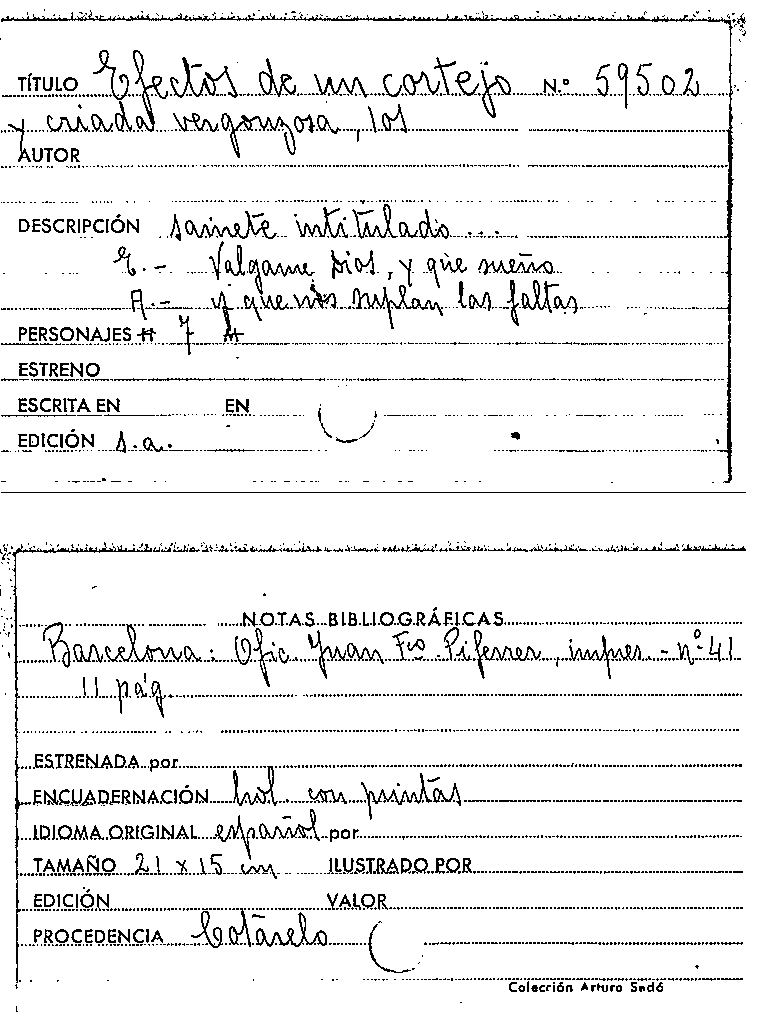 TÍTULO Efectos de un cortejo N.º 59502
y criada vergonzosa, los
AUTOR
DESCRIPCIÓN sainete intitulado...
E.- Valgame Dios, y que sueño
A.- y que nos suplan las faltas
PERSONAJES H 7 M
ESTRENO
ESCRITA EN EN
EDICIÓN s.a.
NOTAS BIBLIOGRÁFICAS
Barcelona: Ofic. Juan Fco. Piferrer, impres. - nº 41
11 pág.
ESTRENADA por
ENCUADERNACIÓN hol. con puntas
IDIOMA ORIGINAL español por
TAMAÑO 21 x 15 cm ILUSTRADO POR
EDICIÓN VALOR
PROCEDENCIA Cotarelo
Colección Arturo Sedó